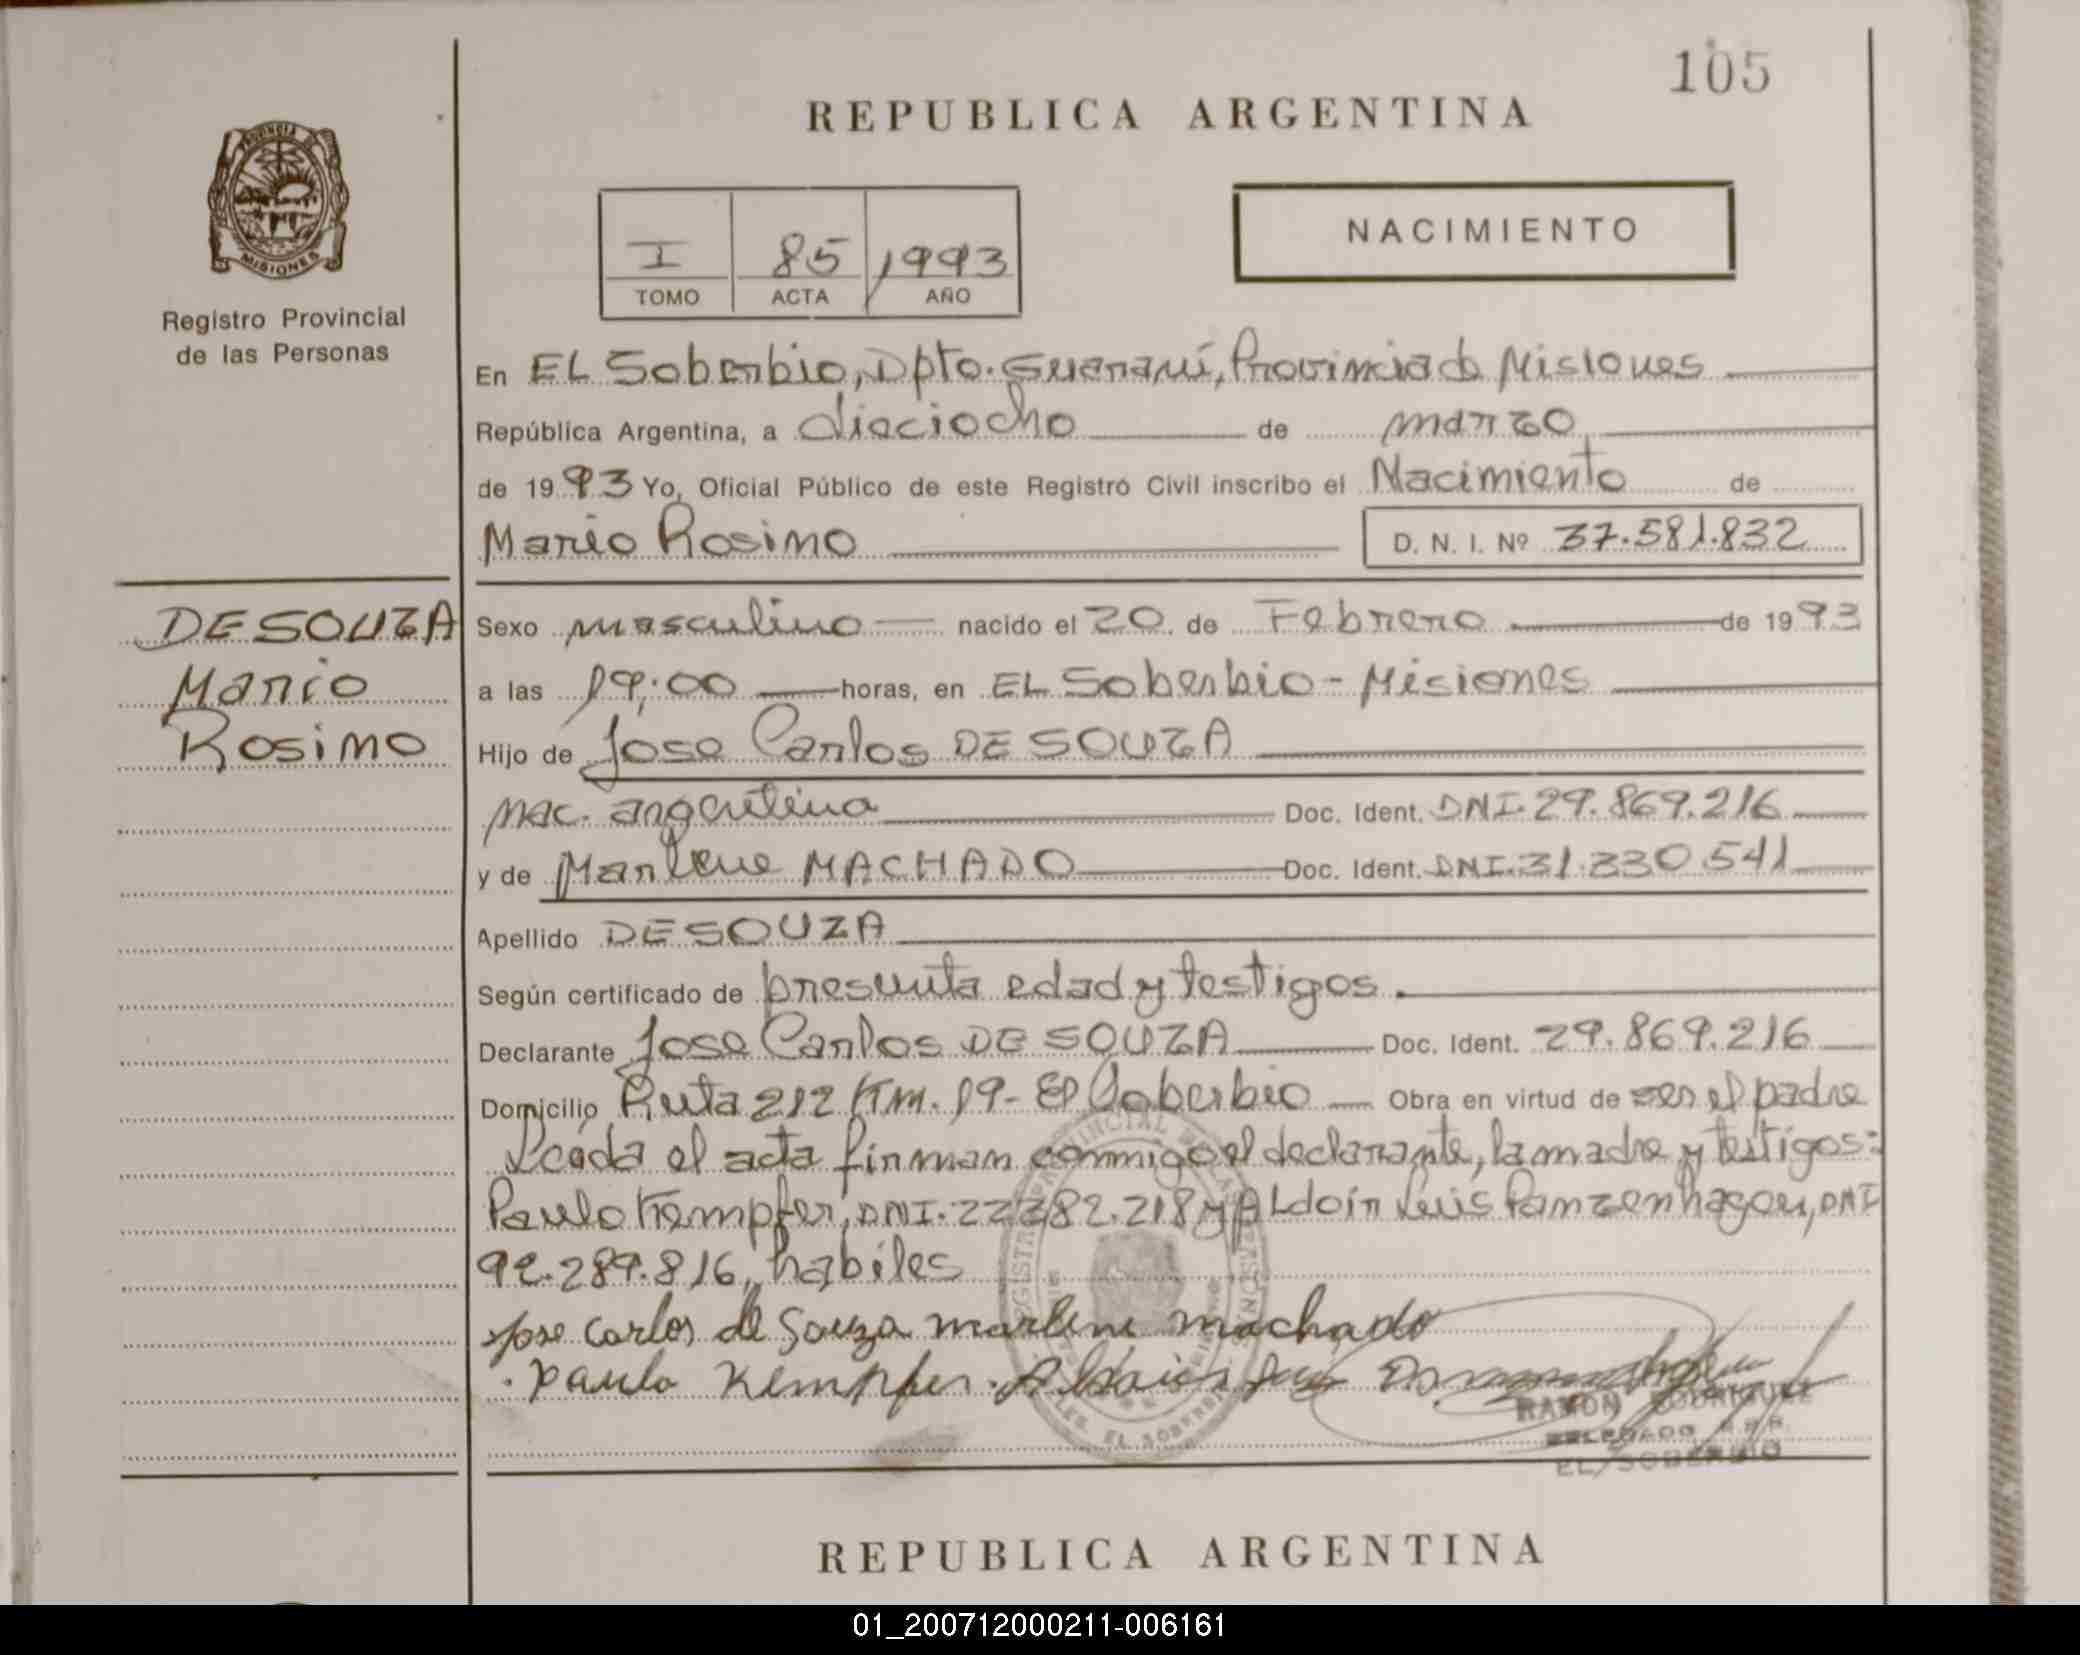 105
REPUBLICA ARGENTINA
PROVINCIA DE
MISIONES
Registro Provincial
de las Personas
I 85 1993
TOMO ACTA AÑO
NACIMIENTO
En EL Soberbio, Dpto. Guaraní, Provincia de Misiones
República Argentina, a dieciocho de marzo
de 1993 Yo, Oficial Público de este Registro Civil inscribo el Nacimiento de
Mario Rosimo D. N. I. Nº 37.581.832
DE SOUZA
Mario
Rosimo
Sexo masculino nacido el 20 de Febrero de 1993
a las 19:00 horas, en EL Soberbio - Misiones
Hijo de Jose Carlos DE SOUZA
nac. argentina Doc. Ident. DNI. 29.869.216
y de Marlene MACHADO Doc. Ident. DNI. 31.330.541
Apellido DE SOUZA
Según certificado de presunta edad y testigos.
Declarante Jose Carlos DE SOUZA Doc. Ident. 29.869.216
Domicilio Ruta 212 Km. 19 - El Soberbio Obra en virtud de ser el padre
Leída el acta firman conmigo el declarante, la madre y testigos:
Paulo Kempfer, DNI. 22.382.218 y ALdoin Luis Panzenhagen, DNI
92.289.816, habiles
Jose Carlos de Souza marlene machado
Paulo Kempfer.
RAMON RODRIGUEZ
DELEGADO
EL SOBERBIO
REPUBLICA ARGENTINA
01_200712000211-006161